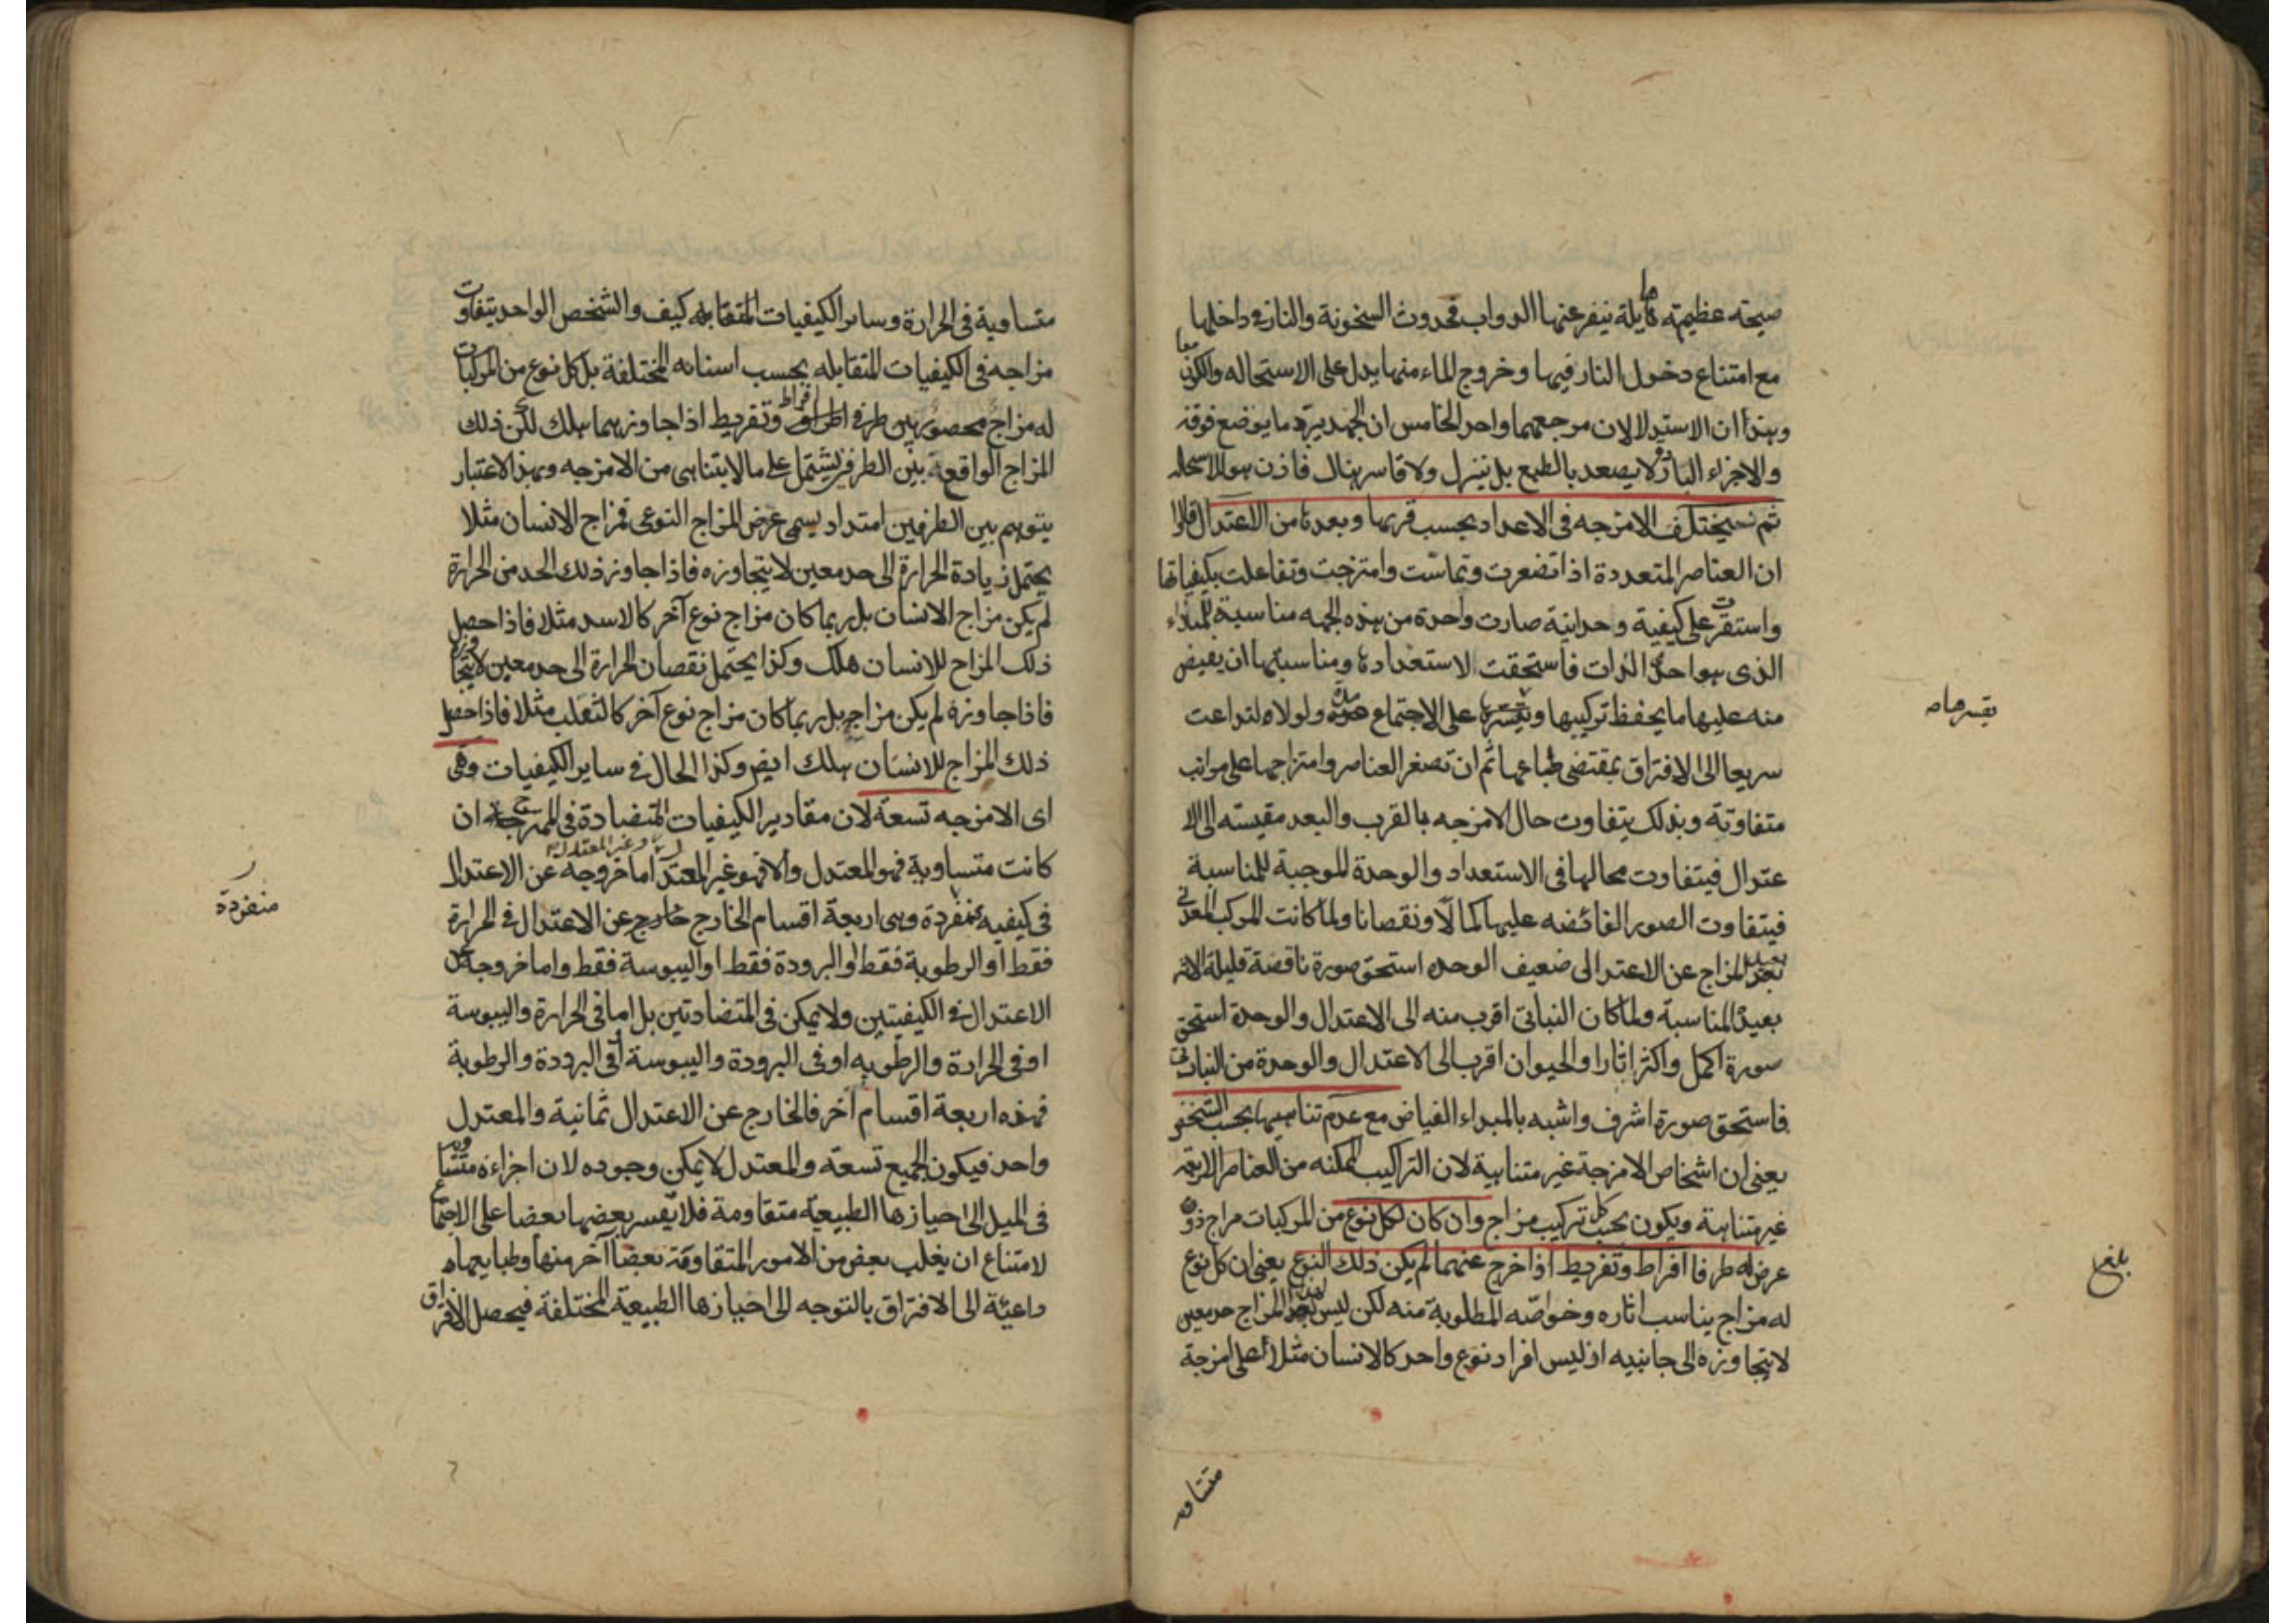 صيحته عظيمة هايلة ينفر عنها الدواب فحدوث السخونة والنار فى داخلها
مع امتناع دخول النار فيها وخروج الماء منها يدل على الاستحاله والكون معا
وهذا ان الاستدلالان مرجعهما واحد الخامس ان الجمد يبرد ما يوضع فوقه
والاجزاء الباردة لا يصعد بالطبع بل ينزل ولا قاسر هناك فاذن هو الاستحاله
ثم يختلف الامزجه فى الاعداد بحسب قربها وبعدها من الاعتدال قالوا
ان العناصر المتعددة اذا تصغرت وتماست وامتزجت وتفاعلت بكيفياتها
واستقرت على كيفية وحدانية صارت واحدة من هذه الجهه مناسبة للمبداء
الذى هو احدى الذات فاستحقت لاستعدادها ومناسبتها ان يفيض
منه عليها ما يحفظ تركيبها ويقسرها على الاجتماع مدة ولولاه لتداعت
يقسرها صه
سريعا الى الافتراق بمقتضى طباعها ثم ان تصغر العناصر وامتزاجها على مراتب
متفاوتة وبذلك يتفاوت حال الامزجه بالقرب والبعد مقيسته الى الا
عتدال فيتفاوت محالها فى الاستعداد والوحدة الموجبة للمناسبة
فيتفاوت الصور الفائضه عليها كمالا ونقصانا ولما كانت المركب المعدنى
بعيد المزاج عن الاعتدال ضعيف الوحده استحق صورة ناقصة قليلة الاثر
بعيدة المناسبة ولما كان النباتى اقرب منه الى الاعتدال والوحدة استحق
صورة اكمل واكثر اثارا والحيوان اقرب الى الاعتدال والوحدة من النباتى
فاستحق صورة اشرف واشبه بالمبداء الفياض مع عدم تناهيها بحسب الشخص
يعنى ان اشخاص الامزجة غير متناهية لان التراكيب الممكنه من العناصر الاربعة
غير متناهية ويكون بحسب كل تركيب مزاج وان كان لكل نوع من المركبات مزاج ذو
عرض له طرفا افراط وتفريط اذا خرج عنهما لم يكن ذلك النوع يعنى ان كل نوع
بلغ
له مزاج يناسب اثاره وخواصه المطلوبة منه لكن ليس لهذا المزاج حد معين
لا يتجاوزه الى جانبيه اذ ليس افراد نوع واحد كالانسان مثلا على امزجة
متساويه
متساوية فى الحرارة وساير الكيفيات المتقابله كيف والشخص الواحد يتفاوت
مزاجه فى الكيفيات المتقابله بحسب اسنانه المختلفة بل كل نوع من المركبات
له مزاج محصور بين طرفى افراط وتفريط اذا جاوزهما هلك لكن ذلك
المزاج الواقعة بين الطرفين يشتمل على مالايتناهى من الامزجه وبهذا الاعتبار
يتوهم بين الطرفين امتداد يسمى عرض المزاج النوعى فمزاج الانسان مثلا
يحتمل زيادة الحرارة الى حد معين لا يتجاوزه فاذا جاوز ذلك الحد من الحرارة
لم يكن مزاج الانسان بل ربما كان مزاج نوع آخر كالاسد مثلا فاذا حصل
ذلك المزاج للانسان هلك وكذا يحتمل نقصان الحرارة الى حد معين لا يتجاوزه
فاذا جاوزه لم يكن مزاجه بل ربما كان مزاج نوع آخر كالثعلب مثلا فاذا حصل
ذلك المزاج للانسان هلك ايض وكذا الحال فى ساير الكيفيات وهى
اى الامزجه تسعة لان مقادير الكيفيات المتضادة فى الممتزج ان
كانت متساوية فهو المعتدل والا فهو غير المعتدل وغير المعتدل اما خروجه عن الاعتدال
فى كيفيه منفردة وهى اربعة اقسام الخارج خارج عن الاعتدال فى الحرارة
منفردة
فقط او الرطوبة فقط او البرودة فقط او اليبوسة فقط واما خروجه عن
الاعتدال فى الكيفيتين ولا يمكن فى المتضادتين بل اما فى الحرارة واليبوسة
او فى الحرارة والرطوبه او فى البرودة واليبوسة او فى البرودة والرطوبة
فهذه اربعة اقسام أخر فالخارج عن الاعتدال ثمانية والمعتدل
واحد فيكون الجميع تسعة والمعتدل لا يمكن وجوده لان اجزاءه متساوية
فى الميل الى احيازها الطبيعية متقاومة فلا يقسر بعضها بعضا على الاجتماع
لامتناع ان يغلب بعض من الامور المتقاومة بعضا آخر منها وطبايعها
داعية الى الافتراق بالتوجه الى احيازها الطبيعية المختلفة فيحصل الافتراق